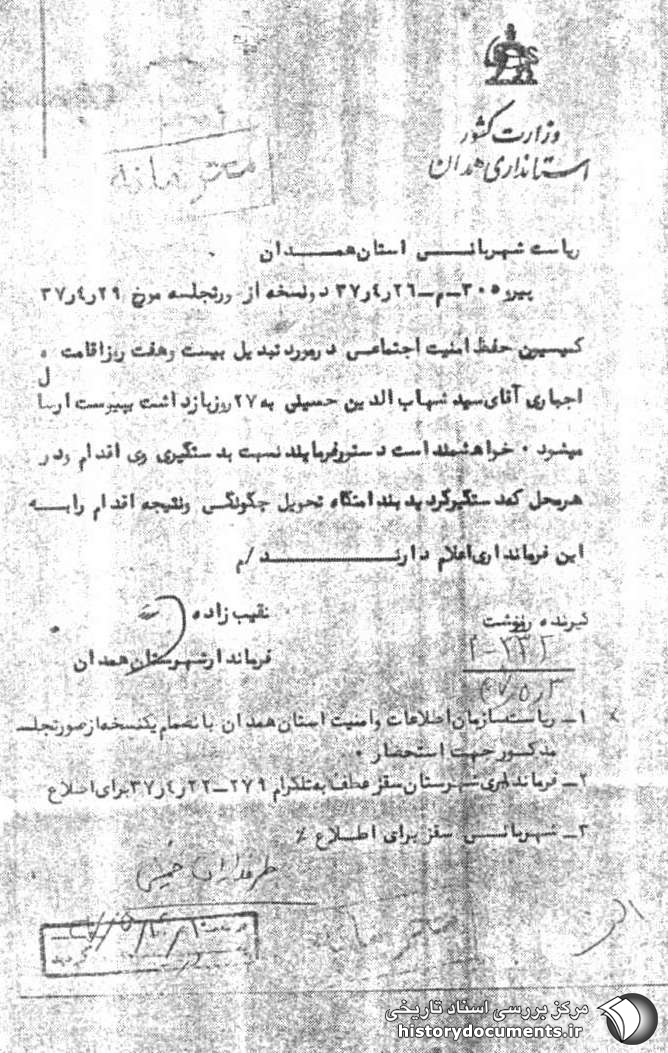 وزارت کشور
استانداری همدان
محترمانه
ریاست شهربانی استان همدان
پیرو ۳۰۵-م-۲۶ر۴ر۳۷ دونسخه از صورتجلسه مورخ ۲۹ر۴ر۳۷
کمیسیون حفظ امنیت اجتماعی درمورد تبدیل بیست وهفت روزاقامت
اجباری آقای سید شهاب الدین حسینی به ۲۷ روزبازداشت بپیوست ارسال
میشود ۰ خواهشمند است دستورفرمایند نسبت بدستگیری وی اقدام ودر
هرمحل که دستگیرگردید بندامتگاه تحویل چگونگی ونتیجه اقدام رابه
این فرمانداری اعلام دارند /م
نقیب زاده
فرماندارشهرستان همدان
گیرنده رونوشت
۱- ریاست سازمان اطلاعات وامنیت استان همدان با نضمام یکنسخه ازصورتجلسه
مذکور جهت استحضار ۰
۲- فرمانداری شهرستان سقز عطف به تلگرام ۲۷۹-۲۲ر۴ر۳۷ برای اطلاع
۳- شهربانی سقز برای اطلاع ٪
طرفداران خمینی
محرمانه
مرکز بررسی اسناد تاریخی
historydocuments.ir